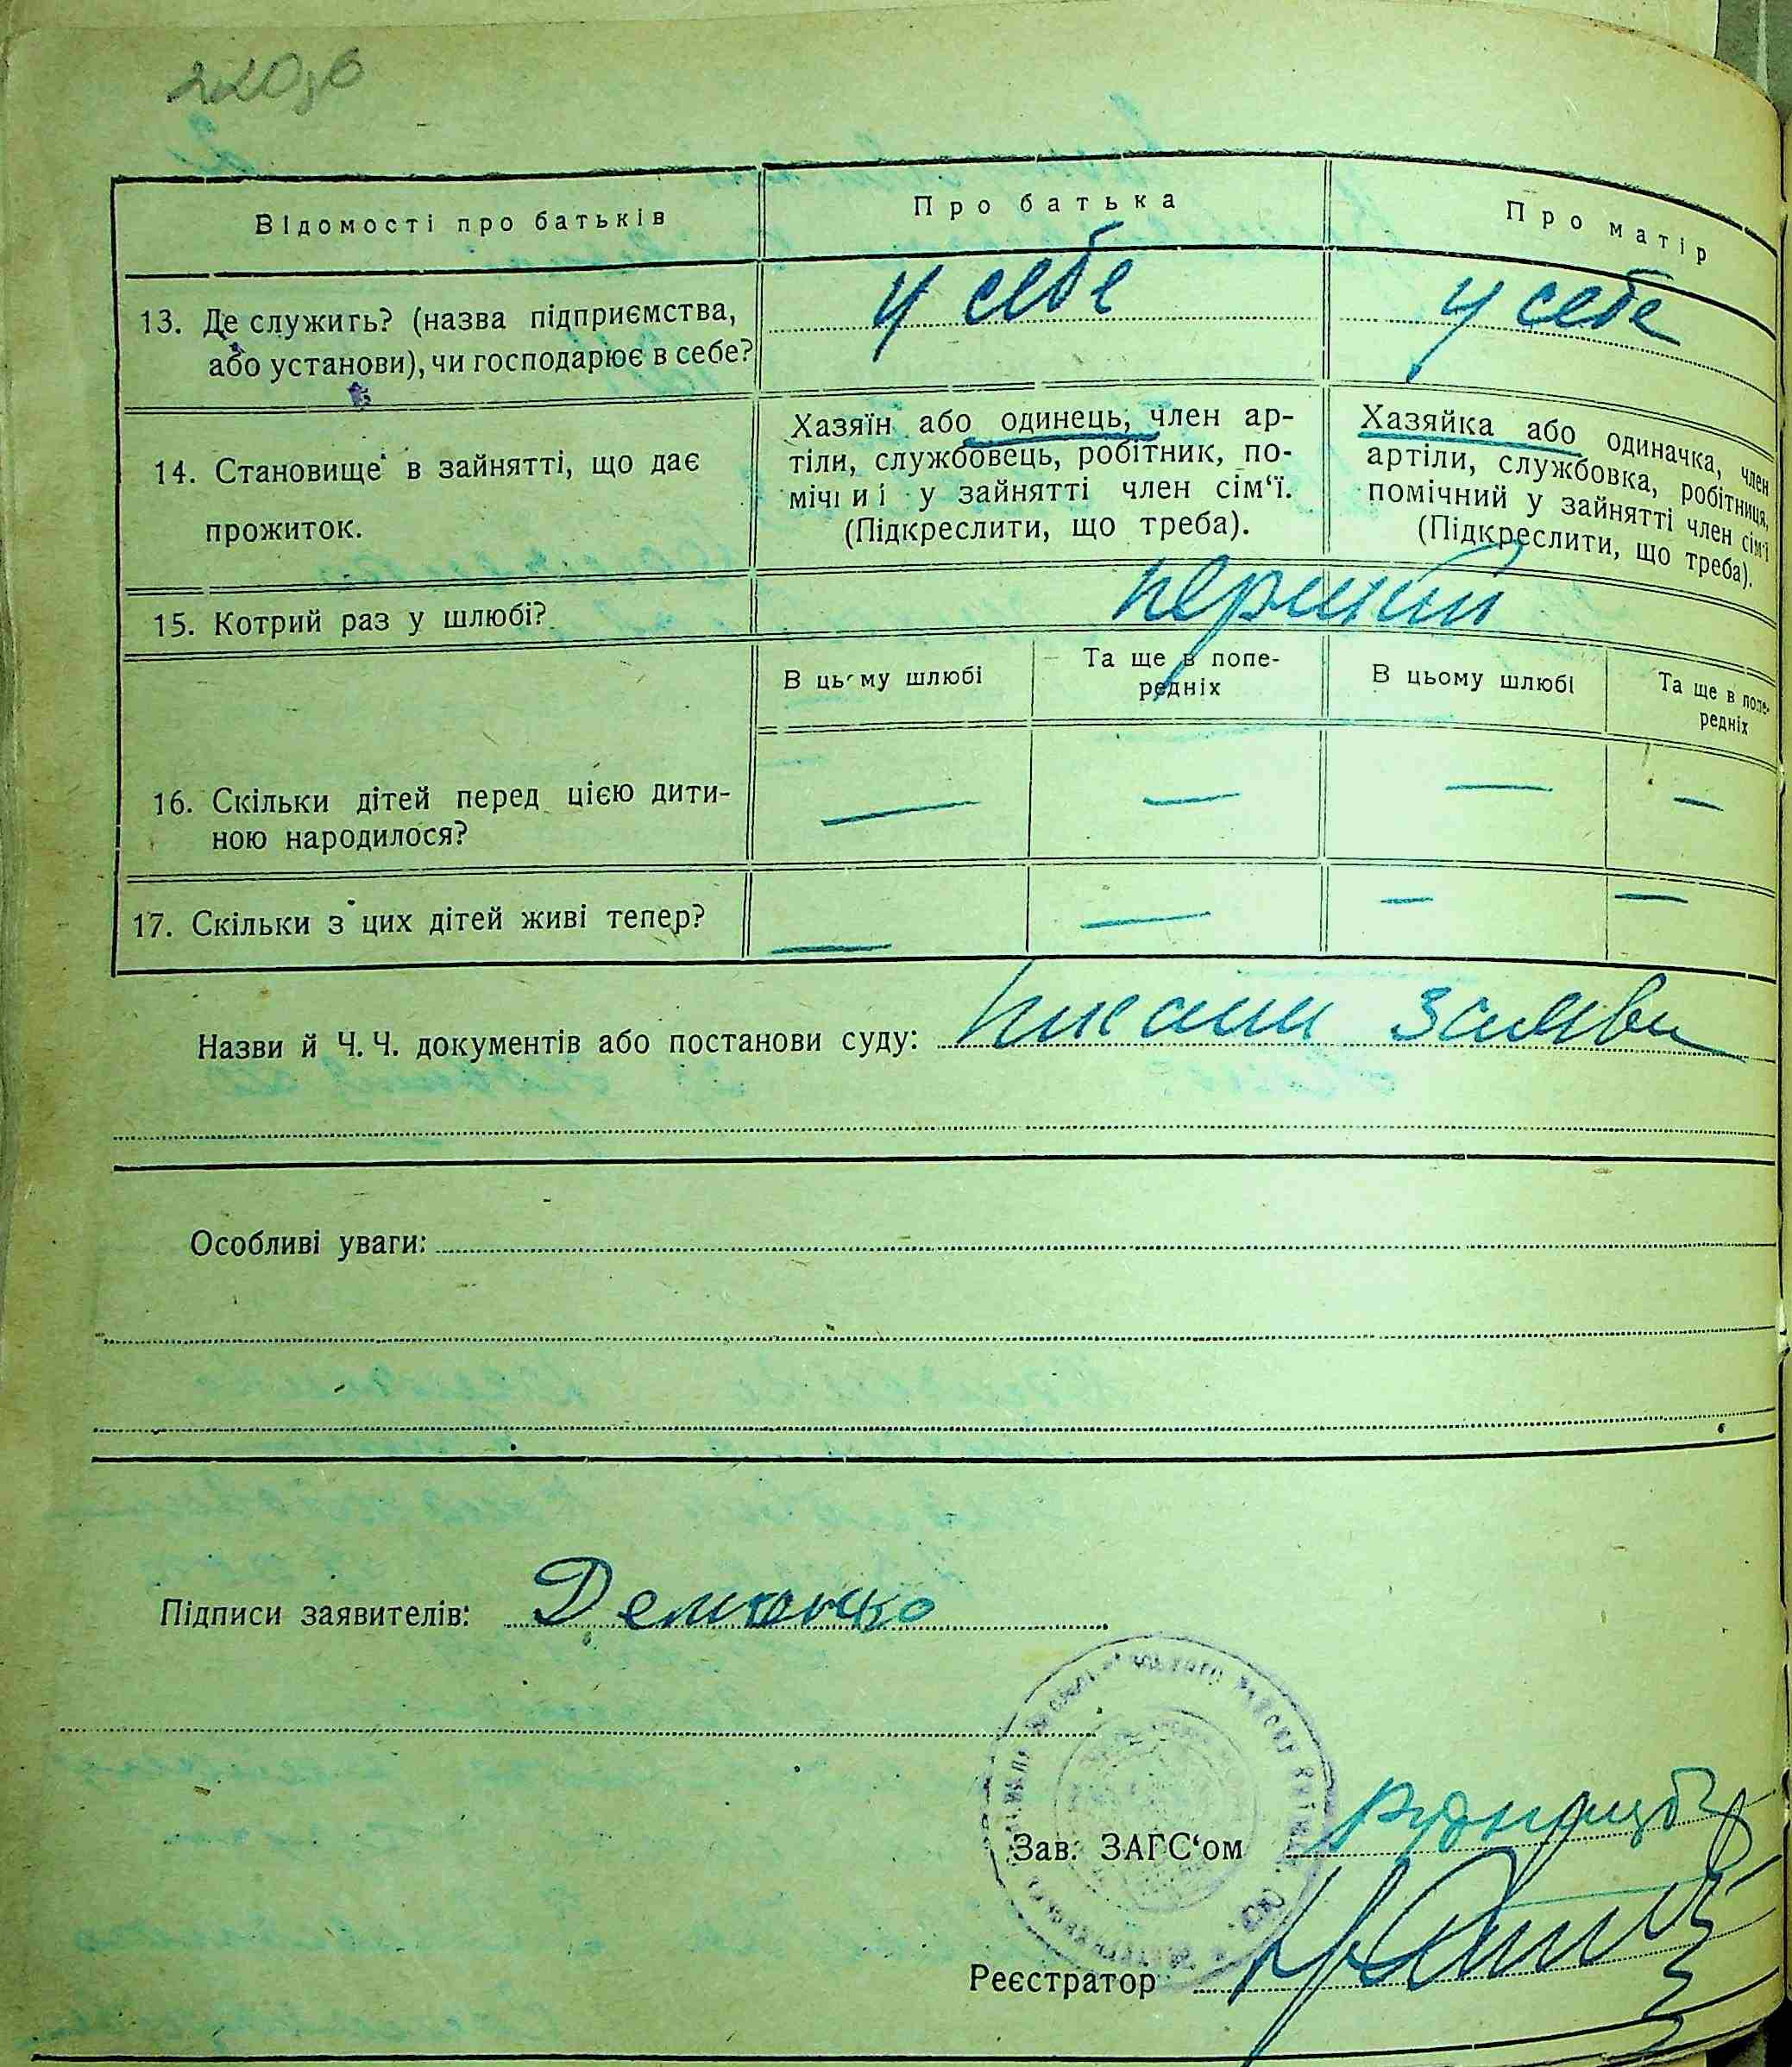 Відомості про батьків
Про батька
Про матір
13. Де служить? (назва підприємства,
або установи), чи господарює в себе?
у себе
у себе
14. Становище в зайнятті, що дає
прожиток.
Хазяїн або одинець, член ар-
тіли, службовець, робітник, по-
мічний у зайнятті член сім‘ї.
(Підкреслити, що треба).
Хазяйка або одиначка, член
артіли, службовка, робітниця,
помічний у зайнятті член сім‘ї
(Підкреслити, що треба).
15. Котрий раз у шлюбі?
перший
В цьому шлюбі
Та ще в попе-
редніх
В цьому шлюбі
Та ще в попе-
редніх
16. Скільки дітей перед цією дити-
ною народилося?
— — — —
17. Скільки з цих дітей живі тепер?
— — — —
Назви й Ч. Ч. документів або постанови суду:
заяви
Особливі уваги:
Підписи заявителів:
Зав. ЗАГС‘ом
Реєстратор